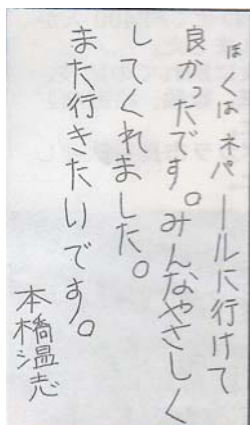 ぼくはネパールに行けて
良かったです。みんなやさしく
してくれました。
また行きたいです。
本橋温志